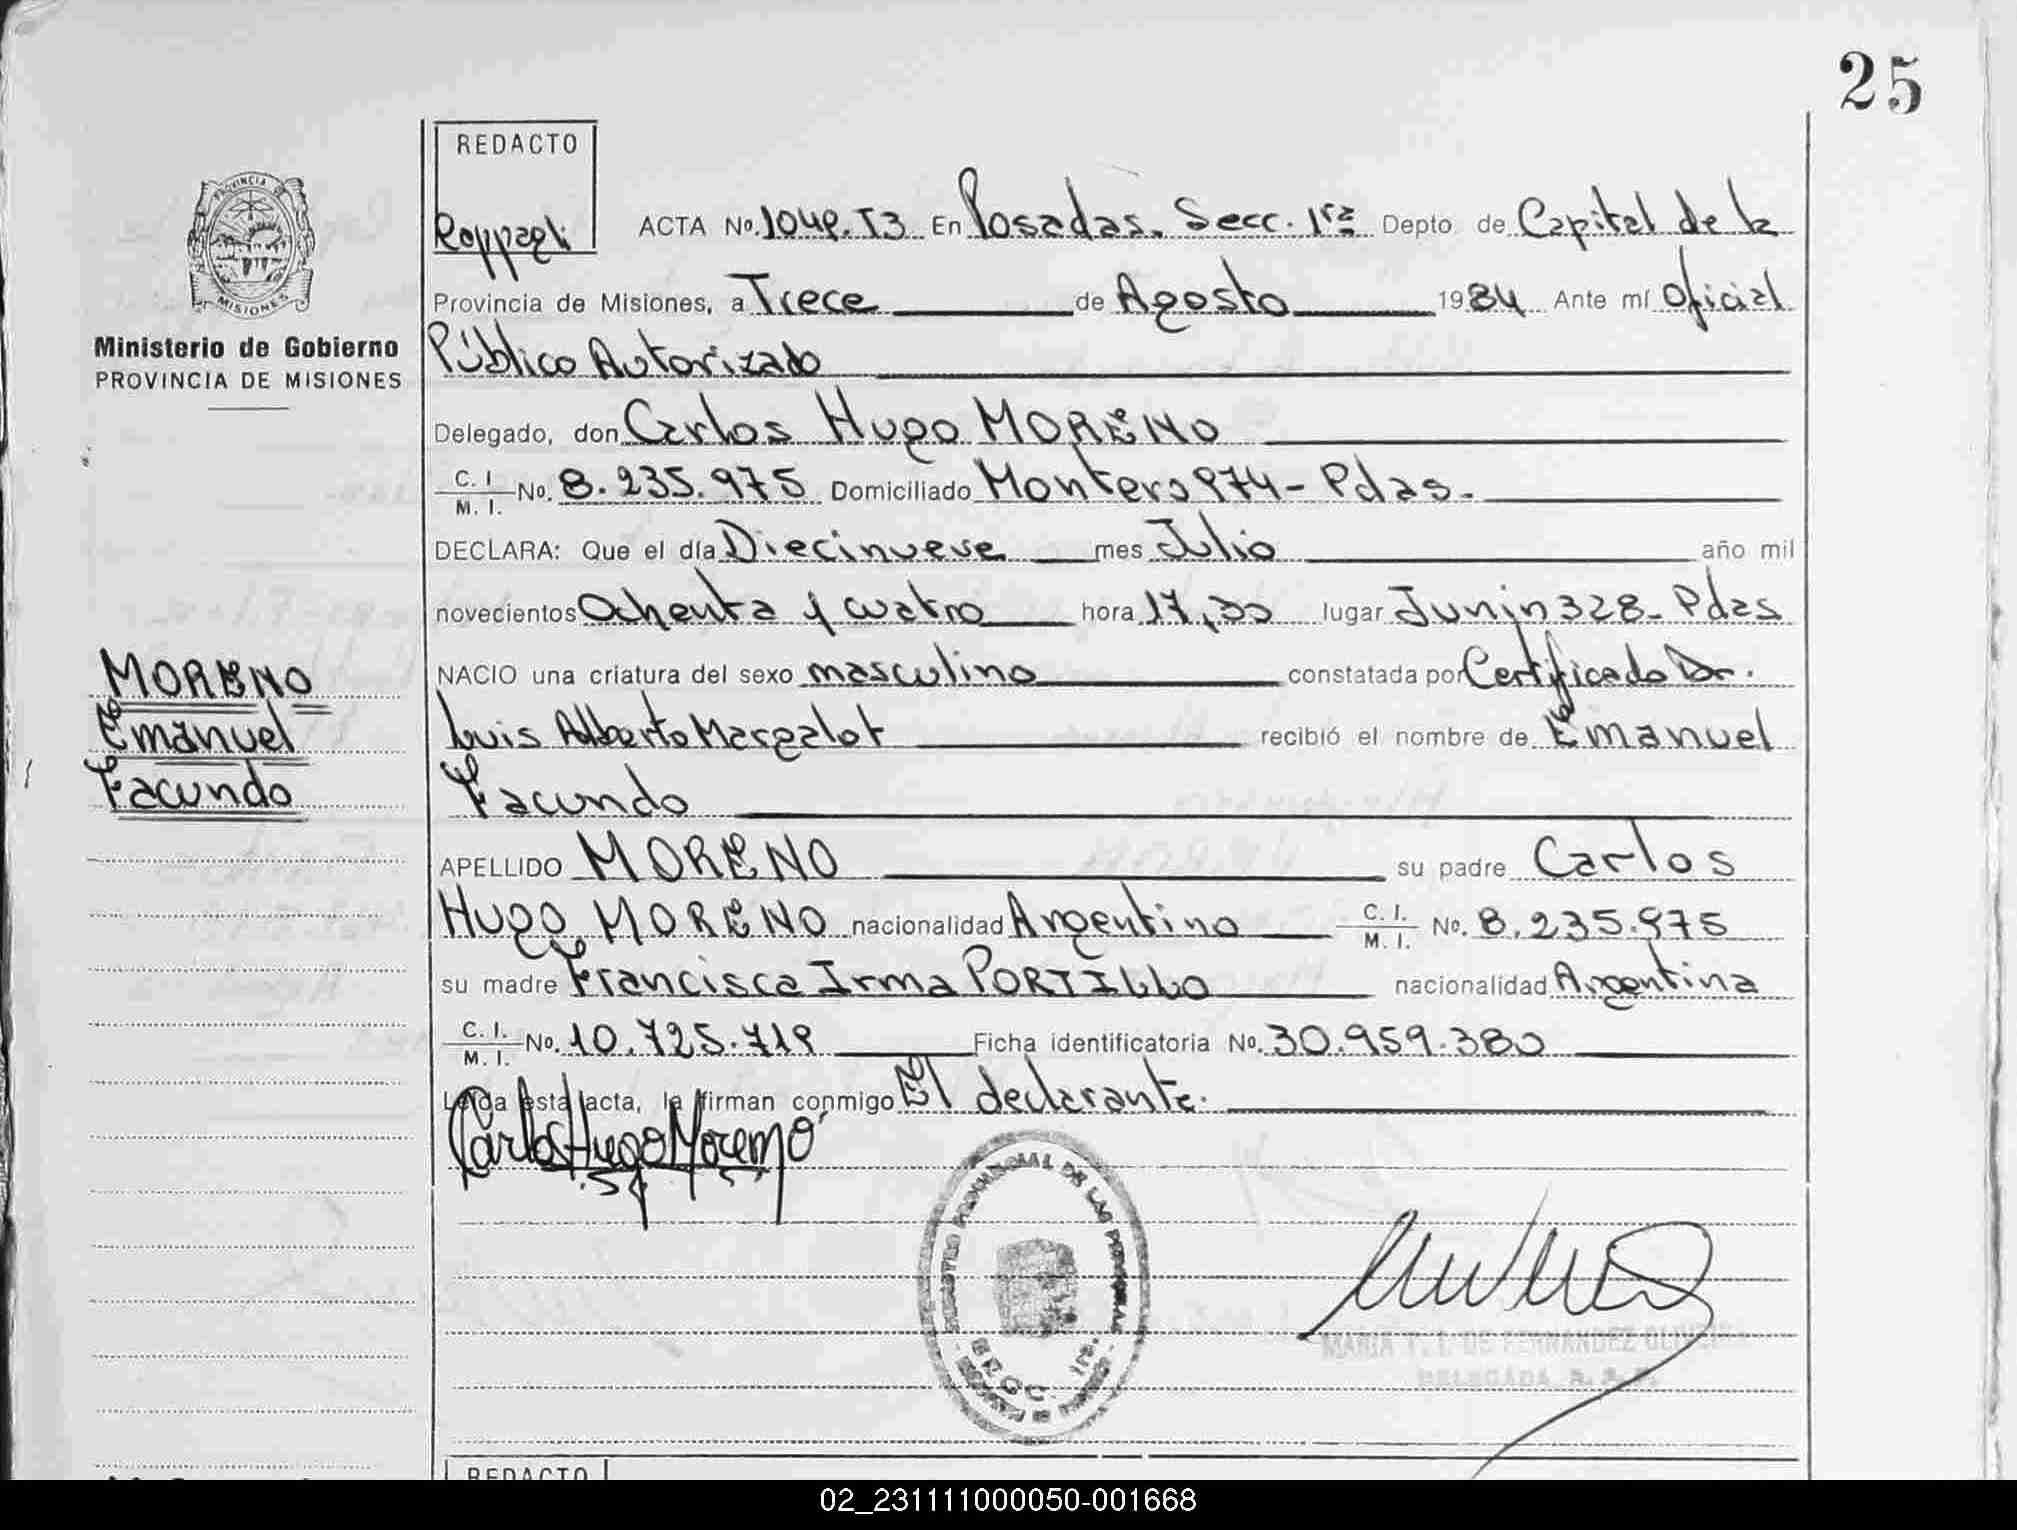 25
REDACTO
ACTA No. 1049. T3 En Posadas. Secc. 1ra Depto de Capital de la
PROVINCIA DE
MISIONES
Provincia de Misiones, a Trece de Agosto 1984 Ante mí Oficial
Ministerio de Gobierno
PROVINCIA DE MISIONES
Público Autorizado
Delegado, don Carlos Hugo MORENO
C. I. M. I. No. 8.235.975 Domiciliado Montero 974 - Pdas.
DECLARA: Que el día Diecinueve mes Julio año mil
novecientos Ochenta y cuatro hora 17,30 lugar Junín 328 - Pdas
NACIO una criatura del sexo masculino constatada por Certificado Dr.
MORENO
Emanuel
Facundo
Luis Alberto Margalot recibió el nombre de Emanuel
Facundo
APELLIDO MORENO su padre Carlos
Hugo MORENO nacionalidad Argentino C. I. M. I. No. 8.235.975
su madre Francisca Irma PORTILLO nacionalidad Argentina
C. I. M. I. No. 10.725.719 Ficha identificatoria No. 30.959.380
Leída esta acta, la firman conmigo El declarante.
Carlos Hugo Moreno
REGISTRO PROVINCIAL DE LAS PERSONAS
MARIA T. I. DE FERNANDEZ
DELEGADA
REDACTO
02_231111000050-001668